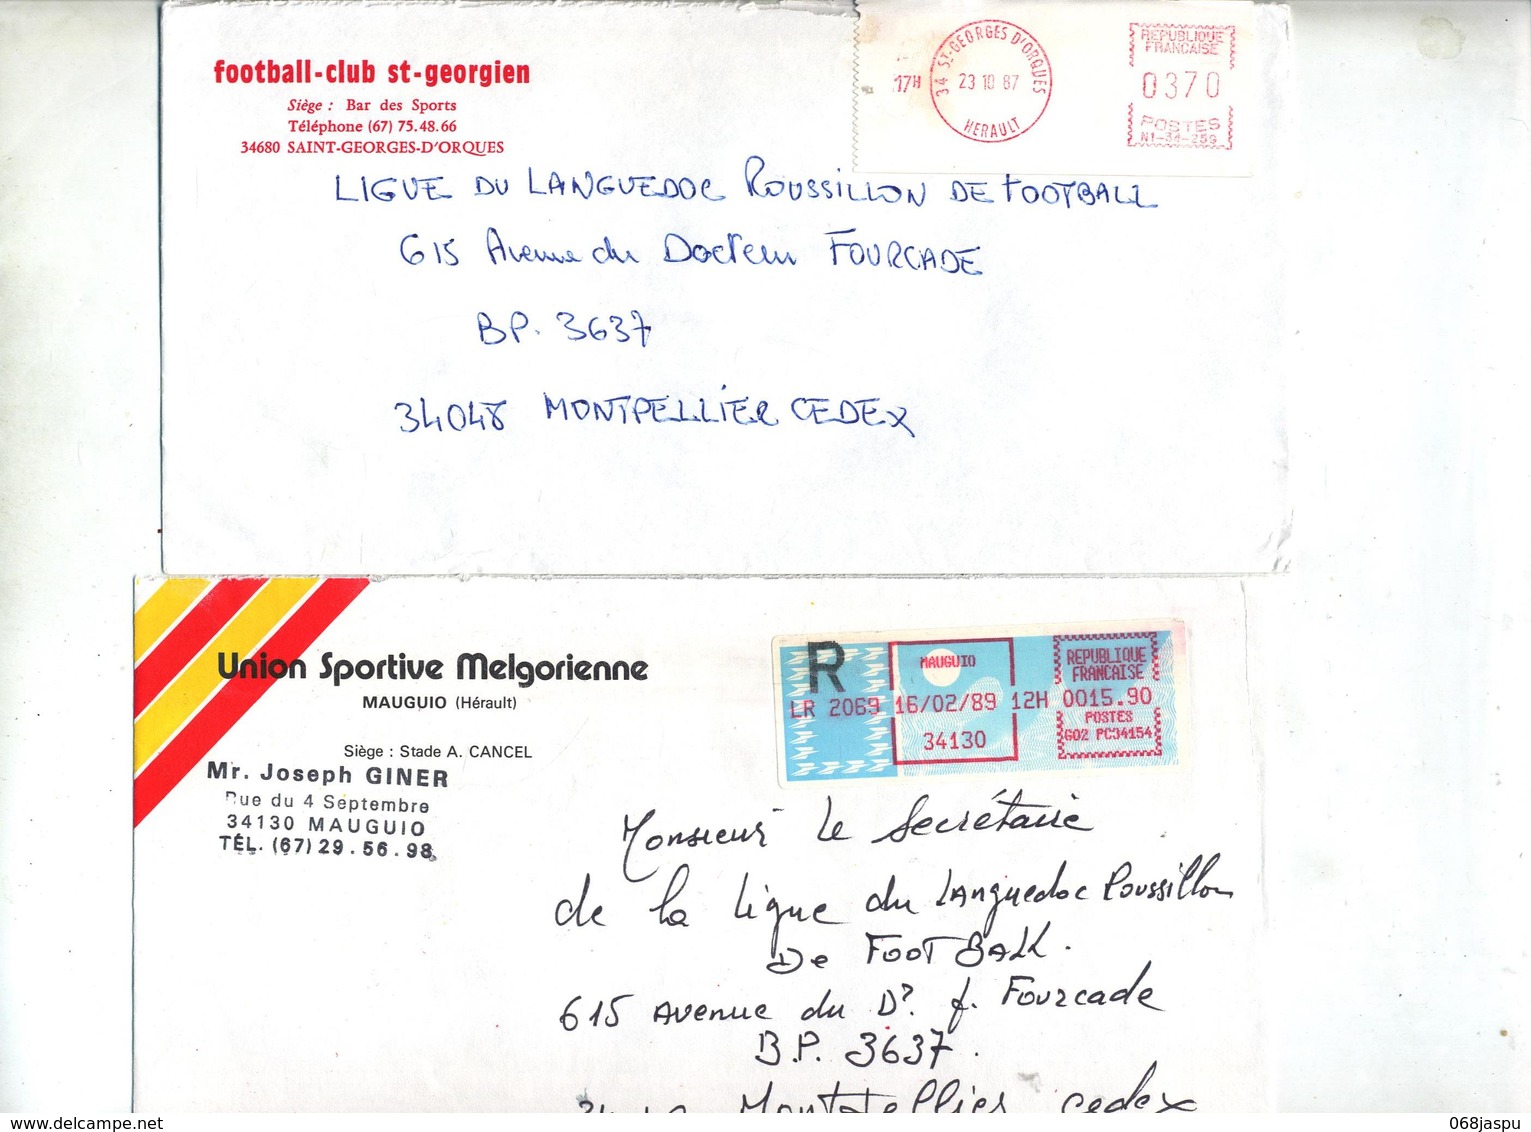 football-club st-georgien
Siège : Bar des Sports
Téléphone (67) 75.48.66
34680 SAINT-GEORGES-D'ORQUES
17H
34 ST-GEORGES D'ORQUES
23 10 87
HERAULT
REPUBLIQUE
FRANCAISE
0370
POSTES
N1-34-259
LIGUE DU LANGUEDOC ROUSSILLON DE FOOTBALL
615 Avenue du Docteur FOURCADE
BP. 3637
34048 MONTPELLIER CEDEX
Union Sportive Melgorienne
MAUGUIO (Hérault)
Siège : Stade A. CANCEL
Mr. Joseph GINER
Rue du 4 Septembre
34130 MAUGUIO
TÉL. (67) 29.56.98
R
MAUGUIO
REPUBLIQUE
FRANCAISE
LR 2069 16/02/89 12H 0015.90
POSTES
34130
G02 PC34154
Monsieur Le Secrétaire
de la Ligue du Languedoc Roussillon
De FOOTBALL.
615 Avenue du Dr. J. Fourcade
B.P. 3637.
Montpellier cedex
068jaspu